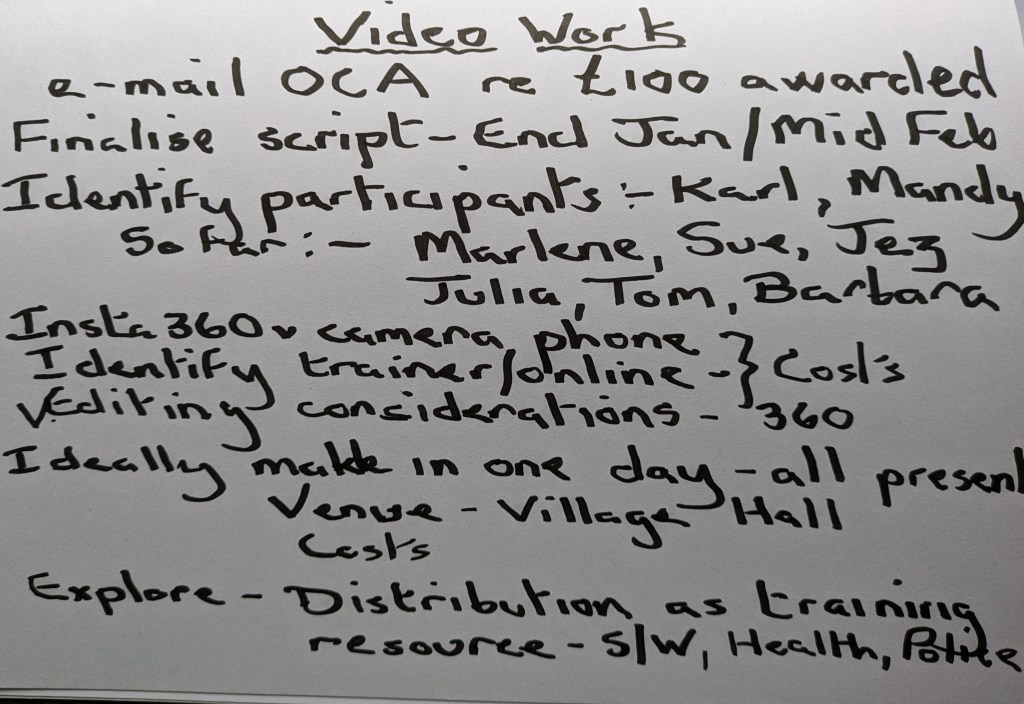 Video Work
e-mail OCA re £100 awarded
Finalise script - End Jan/Mid Feb
Identify participants :- Karl, Mandy
So far :- Marlene, Sue, Jez
Julia, Tom, Barbara
Insta 360 v camera phone
Identify trainer/online - } Costs
√Editing considerations - 360
Ideally make in one day - all present
Venue - Village Hall
Costs
Explore - Distribution as training
resource - S/W, Health, Police